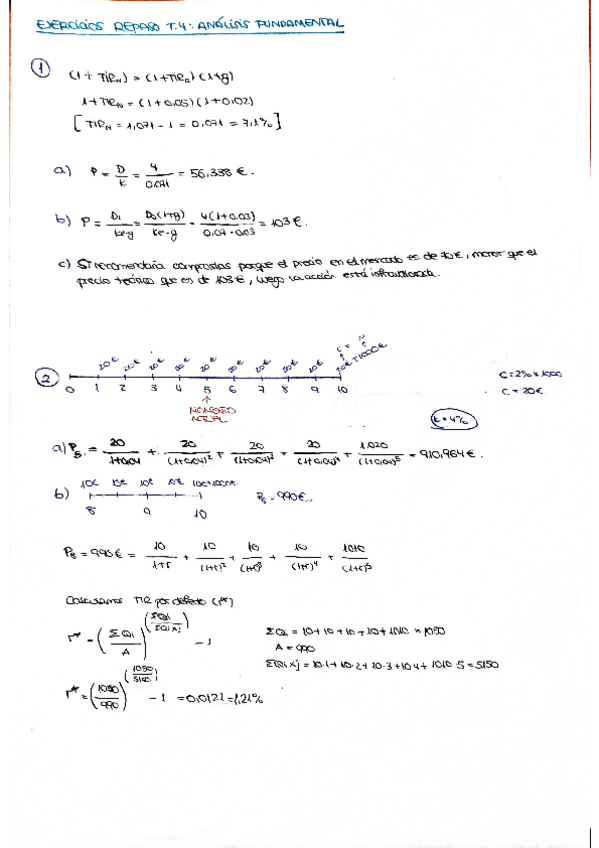 EJERCICIOS REPASO T.4: ANÁLISIS FUNDAMENTAL
1
(1 + TIR_N) = (1+TIR_R) (1+g)
1+TIR_N = (1+0,05) (1+0,02)
[TIR_N = 1,071 - 1 = 0,071 = 7,1%]
a) P = D/K = 4/0,071 = 56,338 €.
b) P = D1/(Ke-g) = D0(1+g)/(Ke-g) = 4(1+0,03)/(0,07-0,03) = 103 €.
c) Sí recomendaría comprarlas porque el precio en el mercado es de 70€, menor que el
precio teórico que es de 103€, luego la acción está infravalorada.
2
20€ 20€ 20€ 20€ 20€ 20€ 20€ 20€ 20€ 20€+1000€
C N
0 1 2 3 4 5 6 7 8 9 10
C = 2% x 1000
C = 20€
MOMENTO
ACTUAL
t = 4%
a) P5 = 20/(1+0,04) + 20/(1+0,04)² + 20/(1+0,04)³ + 20/(1+0,04)⁴ + 1.020/(1+0,04)⁵ = 910,964 €.
b) 10€ 10€ 10€ 10€ 10€+1000€
8 9 10
P8 = 990€.
P8 = 990€ = 10/(1+r) + 10/(1+r)² + 10/(1+r)³ + 10/(1+r)⁴ + 1010/(1+r)⁵
Calculamos TIR por defecto (r*)
r* = (ΣQi/A)^(ΣQi/ΣQi×j) - 1
ΣQi = 10+10+10+10+1010 = 1050
A = 990
ΣQi×j = 10·1+10·2+10·3+10·4+1010·5 = 5150
r* = (1050/990)^(1050/5150) - 1 = 0,0121 = 1,21%